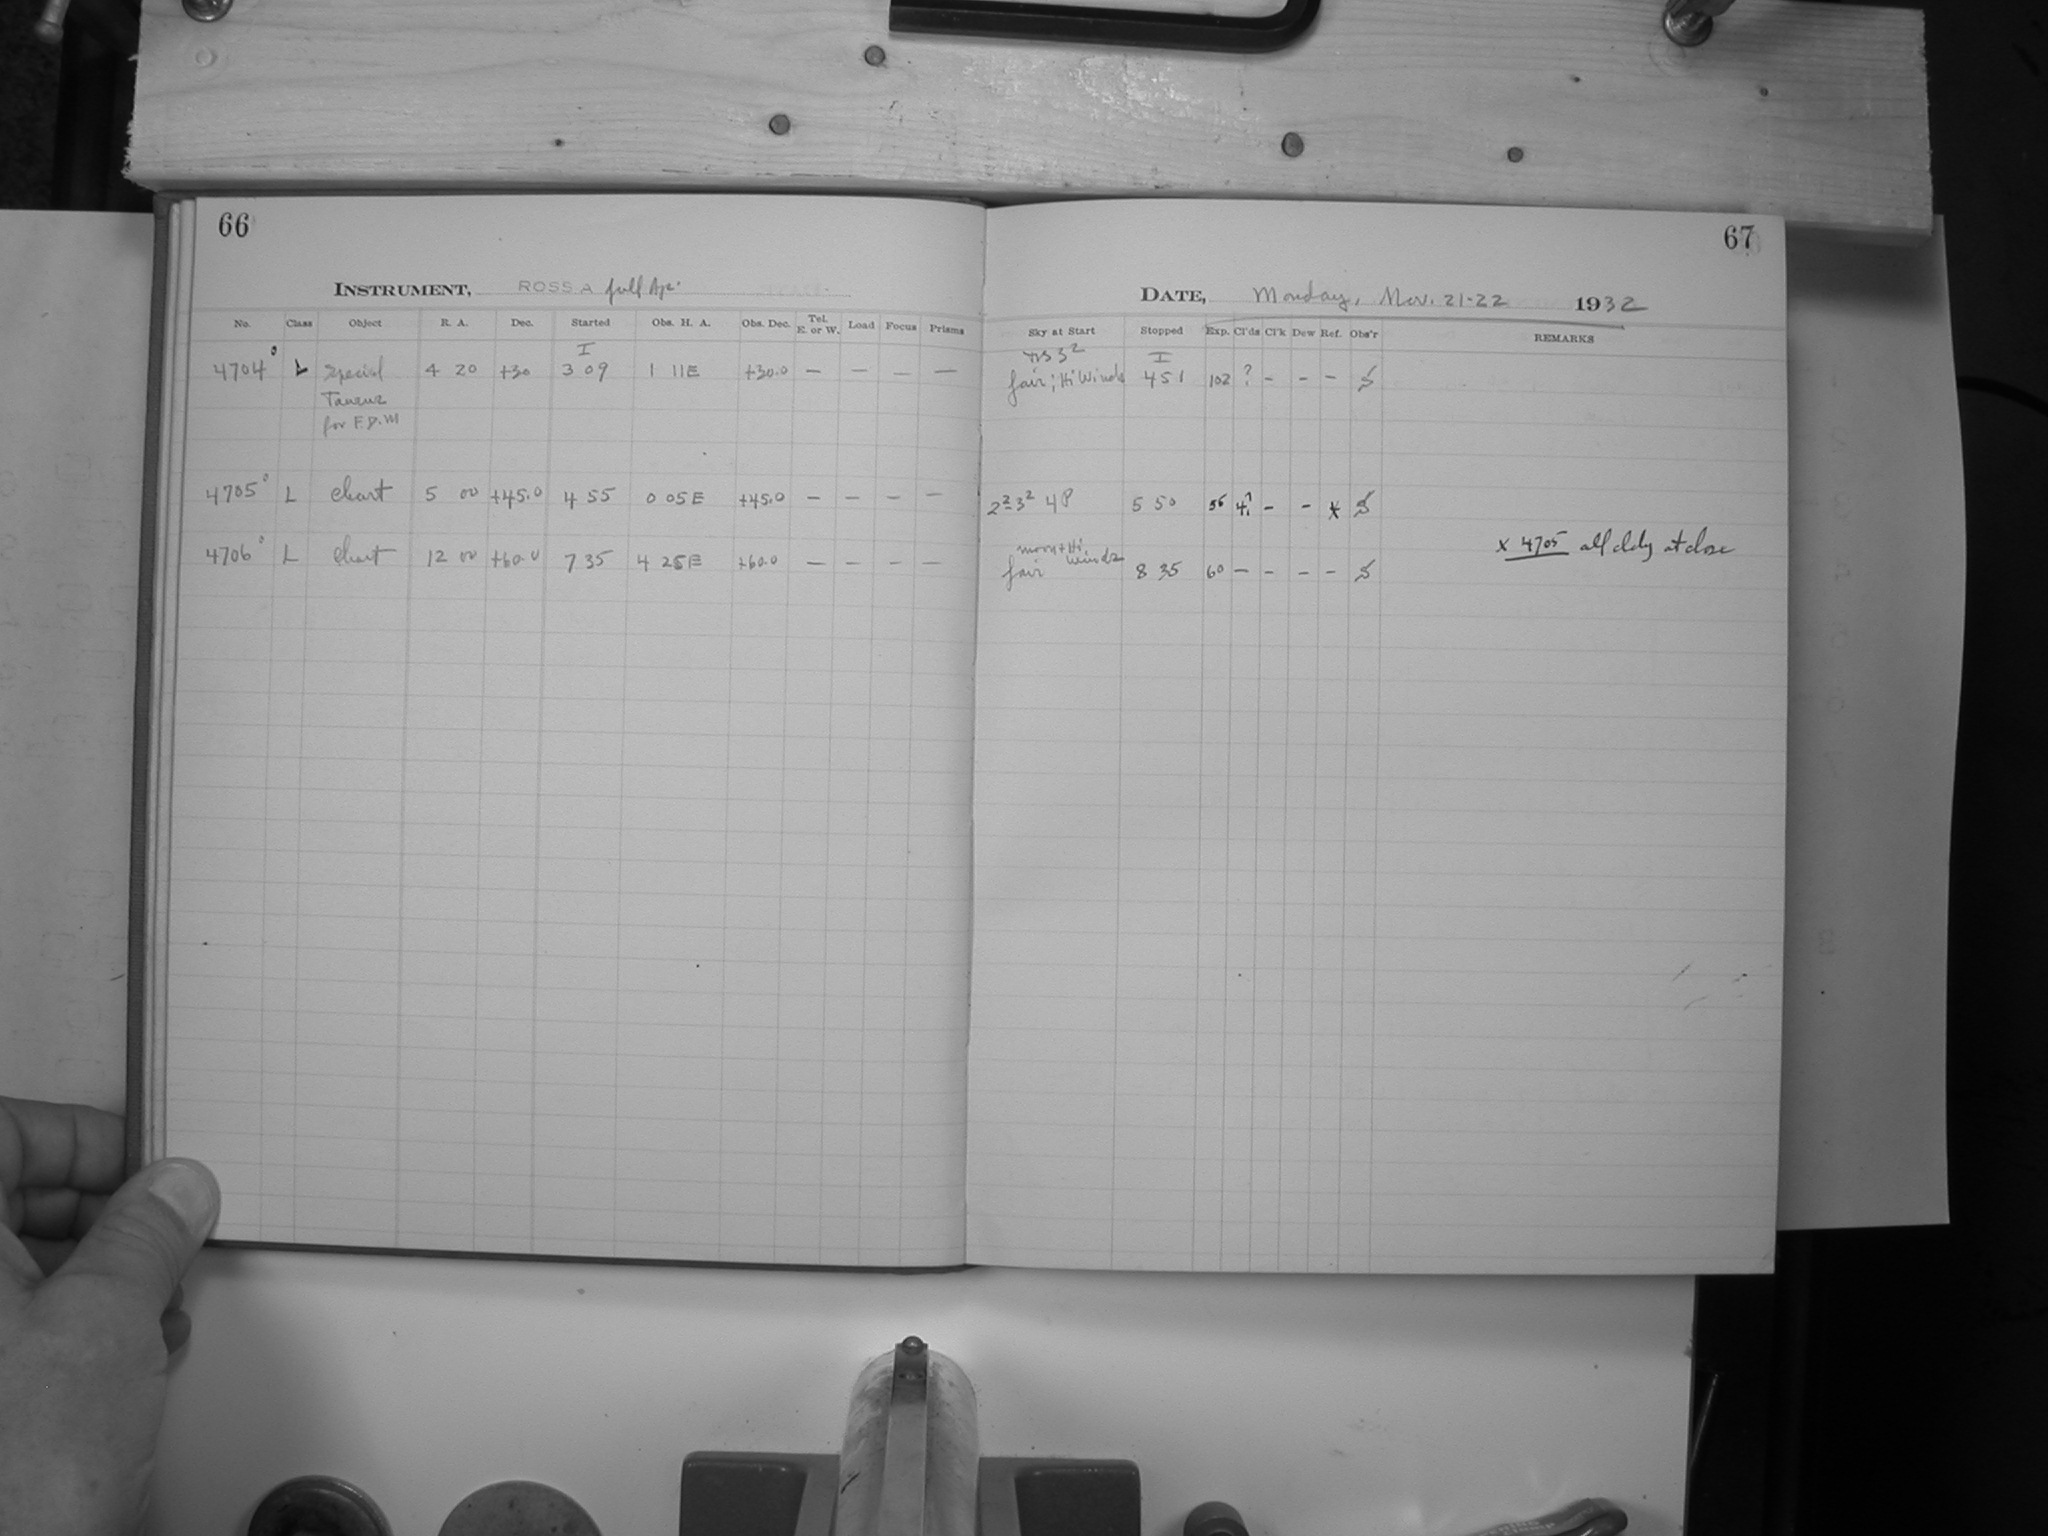 66
INSTRUMENT, ROSS A full Ap.
No. Class Object R. A. Dec. Started Obs. H. A. Obs. Dec. Tel. E. or W. Load Focus Prisms
I
4704° L Special 4 20 +30 3 09 1 11E +30.0 — — — —
Taurus
for F.D.M
4705° L Chart 5 00 +45.0 4 55 0 05E +45.0 — — — —
4706° L Chart 12 00 +60.0 7 35 4 25E +60.0 — — — —
67
DATE, Monday, Nov. 21-22 1932
Sky at Start Stopped Exp. Cl'ds Cl'k Dew Ref. Obs'r REMARKS
3² I
fair; Hi Winds 4 51 102 ? - - -
2²-3² 4P 5 50 55 4? - - x
x 4705 all cldy at close
moon + Hi
Winds
fair 8 35 60 - - - -